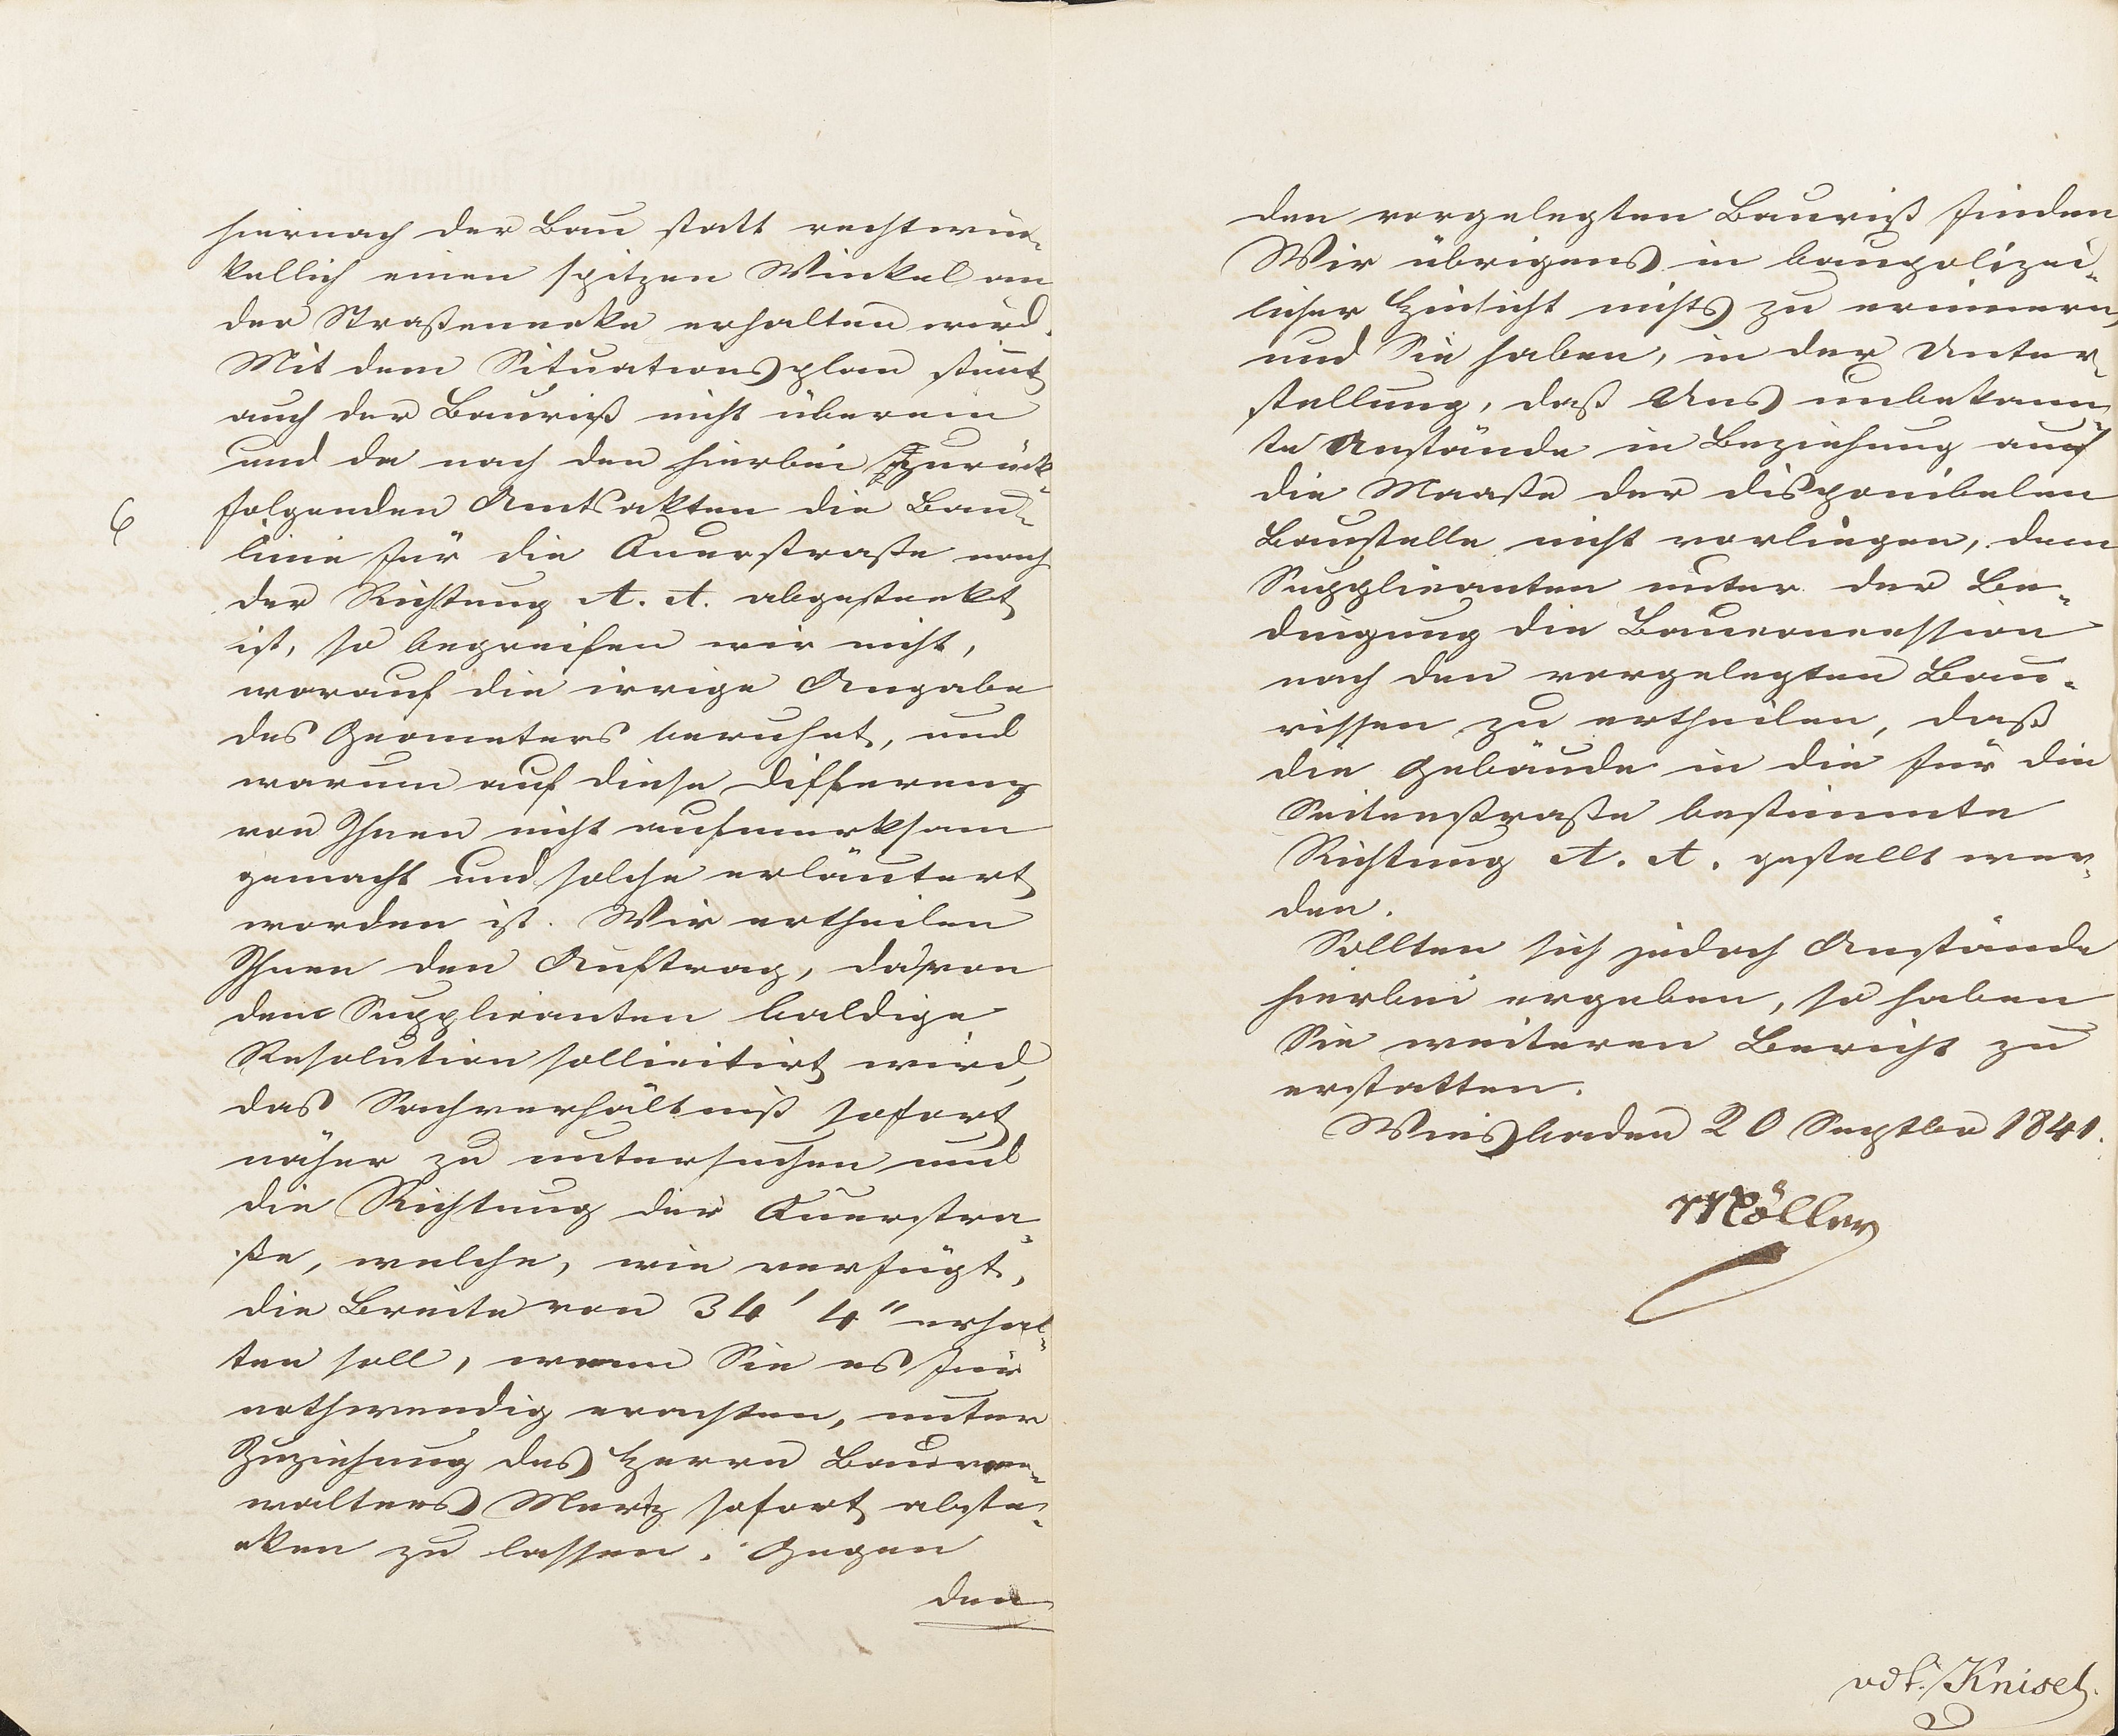 hiernach der Bau statt rechtwin-
kellich einen spitzen Winkel an
der Straßenecke erhalten wird.
Mit dem Situationsplan stimt
auch der Bauriß nicht überein
und da nach den hierbei zurück-
6 folgenden Amtsakten die Bau-
linie für die Querstraße nach
der Richtung A. A. abgesteckt
ist, so begreifen wir nicht,
worauf die irrige Angabe
des Geometers beruhet, und
warum auf diese Differenz
von Ihnen nicht aufmerksam
gemacht und solche erläutert
worden ist. Wir ertheilen
Ihnen den Auftrag, da von
dem Supplicanten baldige
Resolution sollicitirt wird,
das Sachverhältniß sofort
näher zu untersuchen und
die Richtung der Querstra-
ße, welche, wie verfügt,
die Breite von 34' 4" erhal-
ten soll, wenn Sie es für
nothwendig erachten, unter
Zuziehung des Herrn Bauver-
walters Mertz sofort abste-
cken zu lassen. Gegen
den
den vorgelegten Bauriß finden
Wir übrigens in baupolizei-
licher Hinsicht nichts zu erinnern,
und Sie haben, in der Unter-
stellung, daß Uns unbekann-
te Anstände in Beziehung auf
die Maaße der disponibelen
Baustelle nicht vorliegen, dem
Supplicanten unter der Be-
dingung die Bauconcession
nach den vorgelegten Bau-
rissen zu ertheilen, daß
die Gebäude in die für die
Seitenstraße bestimmte
Richtung A. A. gestellt wer-
den.
Sollten sich jedoch Anstände
hierbei ergeben, so haben
Sie weiteren Bericht zu
erstatten.
Wiesbaden 20 Septbr 1841.
Möller
vdt. Knisel.